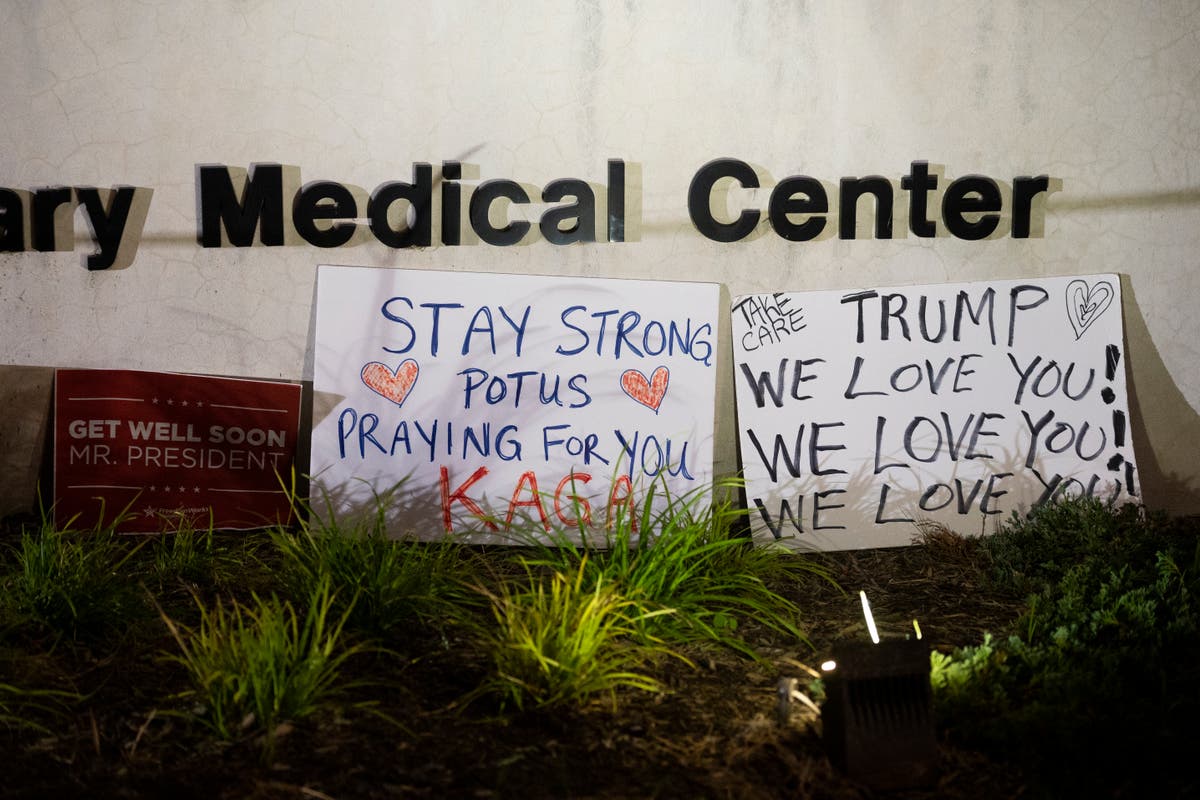 ary Medical Center
GET WELL SOON
MR. PRESIDENT
FreedomWorks
STAY STRONG
POTUS
PRAYING FOR YOU
KAGA
TAKE
CARE
TRUMP
WE LOVE YOU!
WE LOVE YOU!
WE LOVE YOU!